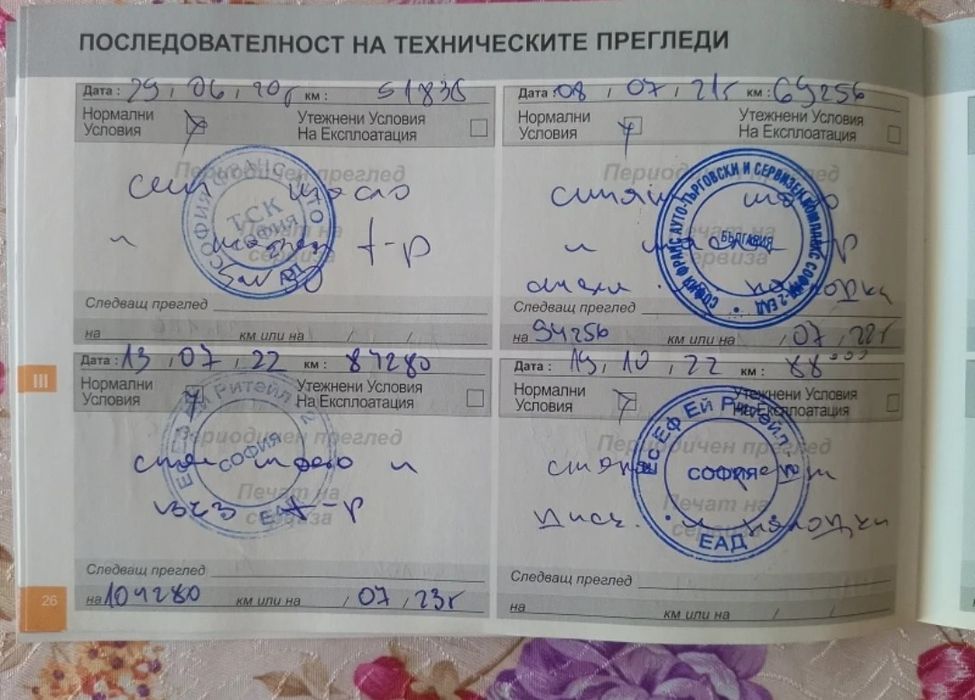 ПОСЛЕДОВАТЕЛНОСТ НА ТЕХНИЧЕСКИТЕ ПРЕГЛЕДИ
Дата : 29 , 06 , 20г км : 51836
Нормални Условия Утежнени Условия На Експлоатация
Периодичен преглед
масло
и f-р
Печат на сервиза
СОФИЯ ФРАНС АУТО
ТСК
СОФИЯ
Следващ преглед
на км или на / /
Дата : 08 / 07 / 21г км : 69256
Нормални Условия Утежнени Условия На Експлоатация
Периодичен преглед
масло
и f-р
накладки
Печат на сервиза
СОФИЯ ФРАНС АУТО-ТЪРГОВСКИ И СЕРВИЗЕН КОМПЛЕКС СОФИЯ 2 ЕАД
БЪЛГАРИЯ
Следващ преглед
на 94256 км или на / 07 / 22г
III
Дата : 13 , 07 , 22 км : 84280
Нормални Условия Утежнени Условия На Експлоатация
Периодичен преглед
масло и
въз f-р
Печат на сервиза
Ес Еф Ей Ритейл 2
СОФИЯ
ЕАД
Следващ преглед
на 104280 км или на / 07 , 23г
Дата : 19 , 10 , 22 км : 88°°°
Нормални Условия Утежнени Условия На Експлоатация
Периодичен преглед
диск. и накладки
Печат на сервиза
ЕС ЕФ Ей Ритейл 2
СОФИЯ
ЕАД
Следващ преглед
на км или на / /
26